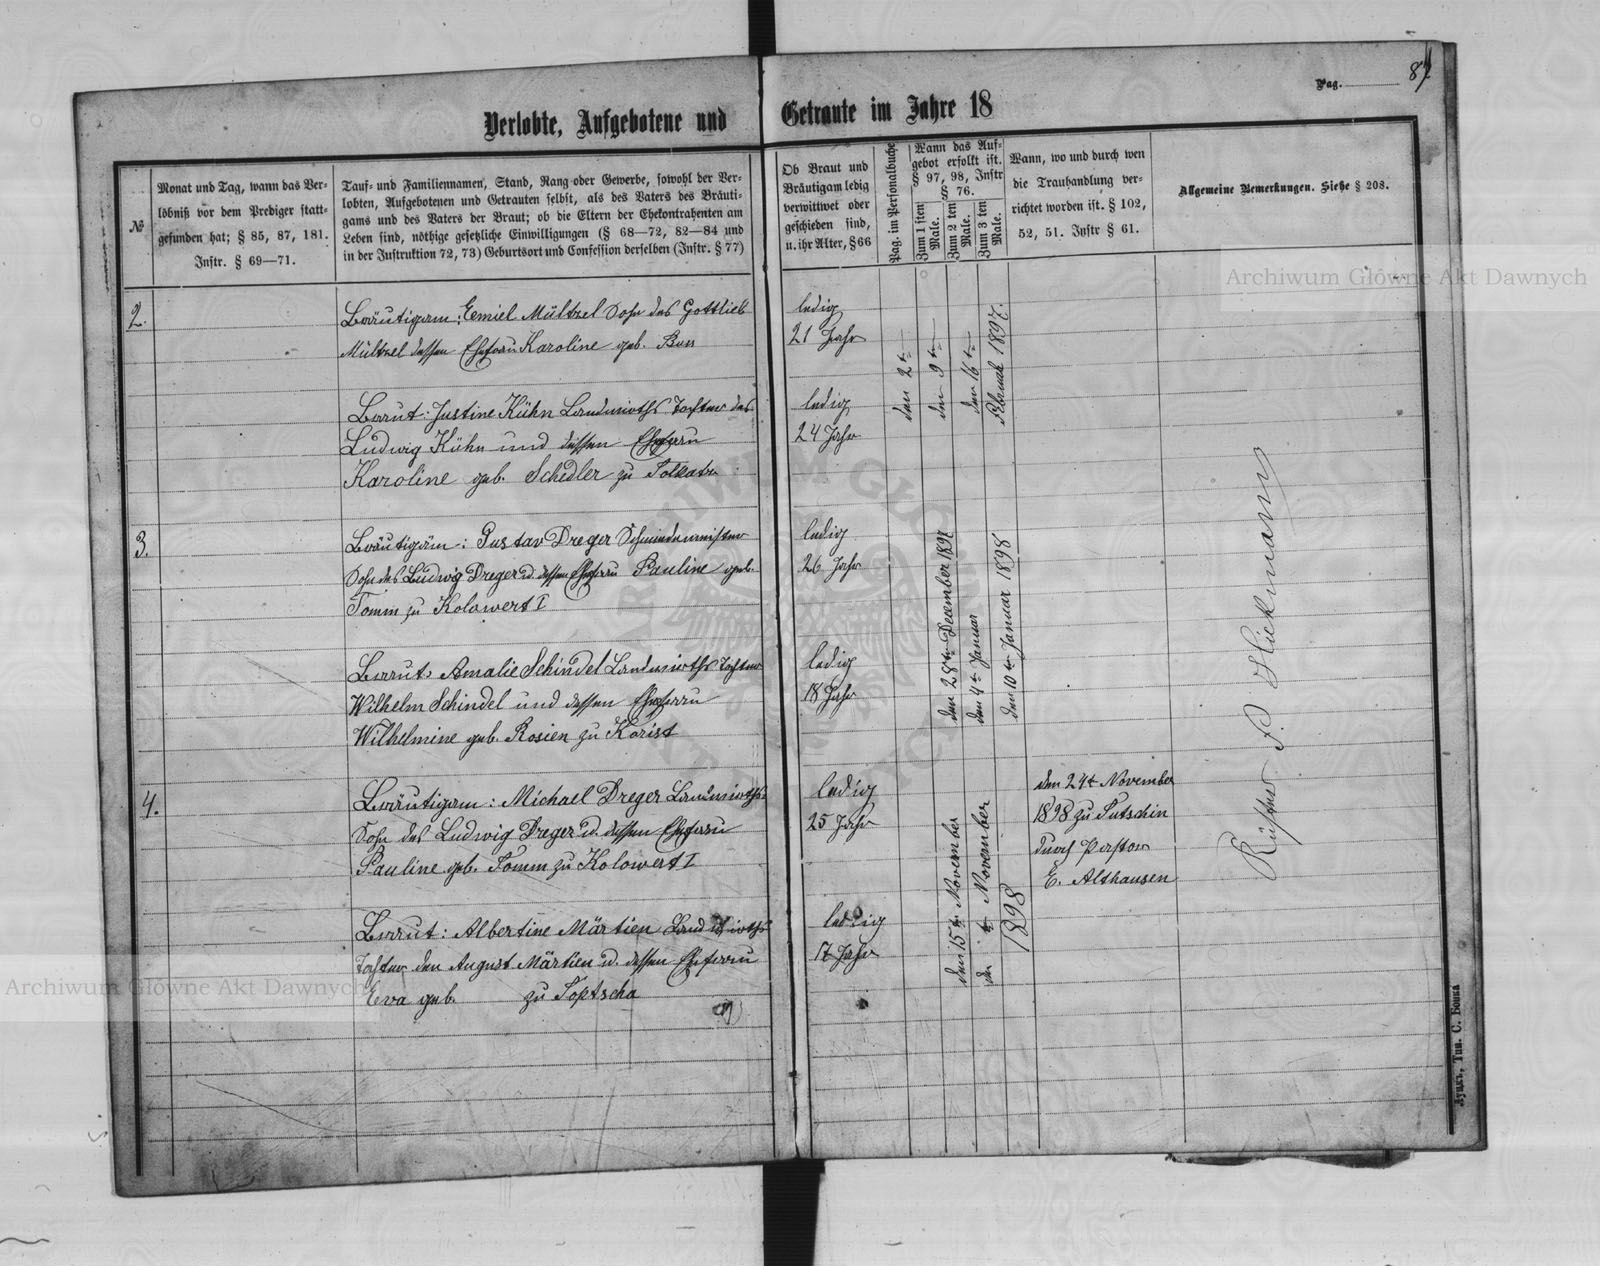 Pag. 87
Verlobte, Aufgebotene und Getraute im Jahre 18
№
Monat und Tag, wann das Ver-
löbniß vor dem Prediger statt-
gefunden hat; § 85, 87, 181.
Instr. § 69—71.
Tauf- und Familiennamen, Stand, Rang oder Gewerbe, sowohl der Ver-
lobten, Aufgebotenen und Getrauten selbst, als des Vaters des Bräuti-
gams und des Vaters der Braut; ob die Eltern der Ehekontrahenten am
Leben sind, nöthige gesetzliche Einwilligungen (§ 68—72, 82—84 und
in der Instruktion 72, 73) Geburtsort und Confession derselben (Instr. § 77)
Ob Braut und
Bräutigam ledig
verwittwet oder
geschieden sind,
u. ihr Alter, § 66
Pag. im Personalbuche
Wann das Auf-
gebot erfolkt ist.
§ 97, 98, Instr
§ 76.
Zum 1 sten
Male.
Zum 2 ten
Male.
Zum 3 ten
Male.
Wann, wo und durch wen
die Trauhandlung ver-
richtet worden ist. § 102,
52, 51. Instr § 61.
Allgemeine Bemerkungen. Siehe § 208.
2.
Bräutigam: Eemiel Mültzel Sohn des Gottlieb
Mültzel dessen Ehefrau Karoline geb.
ledig
21 Jahr
Braut: Justine Kühn Landwirths Tochter des
Ludwig Kühn und dessen Ehefrau
Karoline geb. Schedler zu
ledig
24 Jahr
den 2t
den 9t
den 16t
Februar 1897.
3.
Bräutigam: Gustav Dreger Schmiedemeister
Sohn des Ludwig Dreger u. dessen Ehefrau Pauline geb.
Tomm zu Kolowert I
ledig
26 Jahr
Braut: Amalie Schindel Landwirths Tochter
Wilhelm Schindel und dessen Ehefrau
Wilhelmine geb. Rosien zu Korist
ledig
18 Jahr
den 28ten December 1897
den 4t Januar
den 10ten Januar 1898
4.
Bräutigam: Michael Dreger Landwirths
Sohn des Ludwig Dreger u. dessen Ehefrau
Pauline geb. Tomm zu Kolowert I
ledig
25 Jahr
Braut: Albertine Märtien Landwirths
Tochter den August Märtien u. dessen Ehefrau
Eva geb. zu Toptscha
ledig
17 Jahr
den 15t November
den t November
1898
den 24t November
1898 zu Tutschin
durch Pastor
E. Althausen
Küster P. Hickmann
Луцкъ, Тип. С. Бонка
Archiwum Główne Akt Dawnych
Archiwum Główne Akt Dawnych